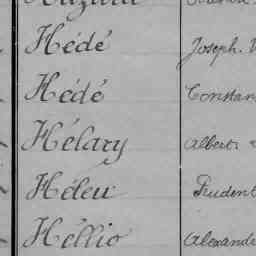 Hédé Joseph
Hédé Constan
Hélary Albert
Héleu Prudent
Héllio Alexand